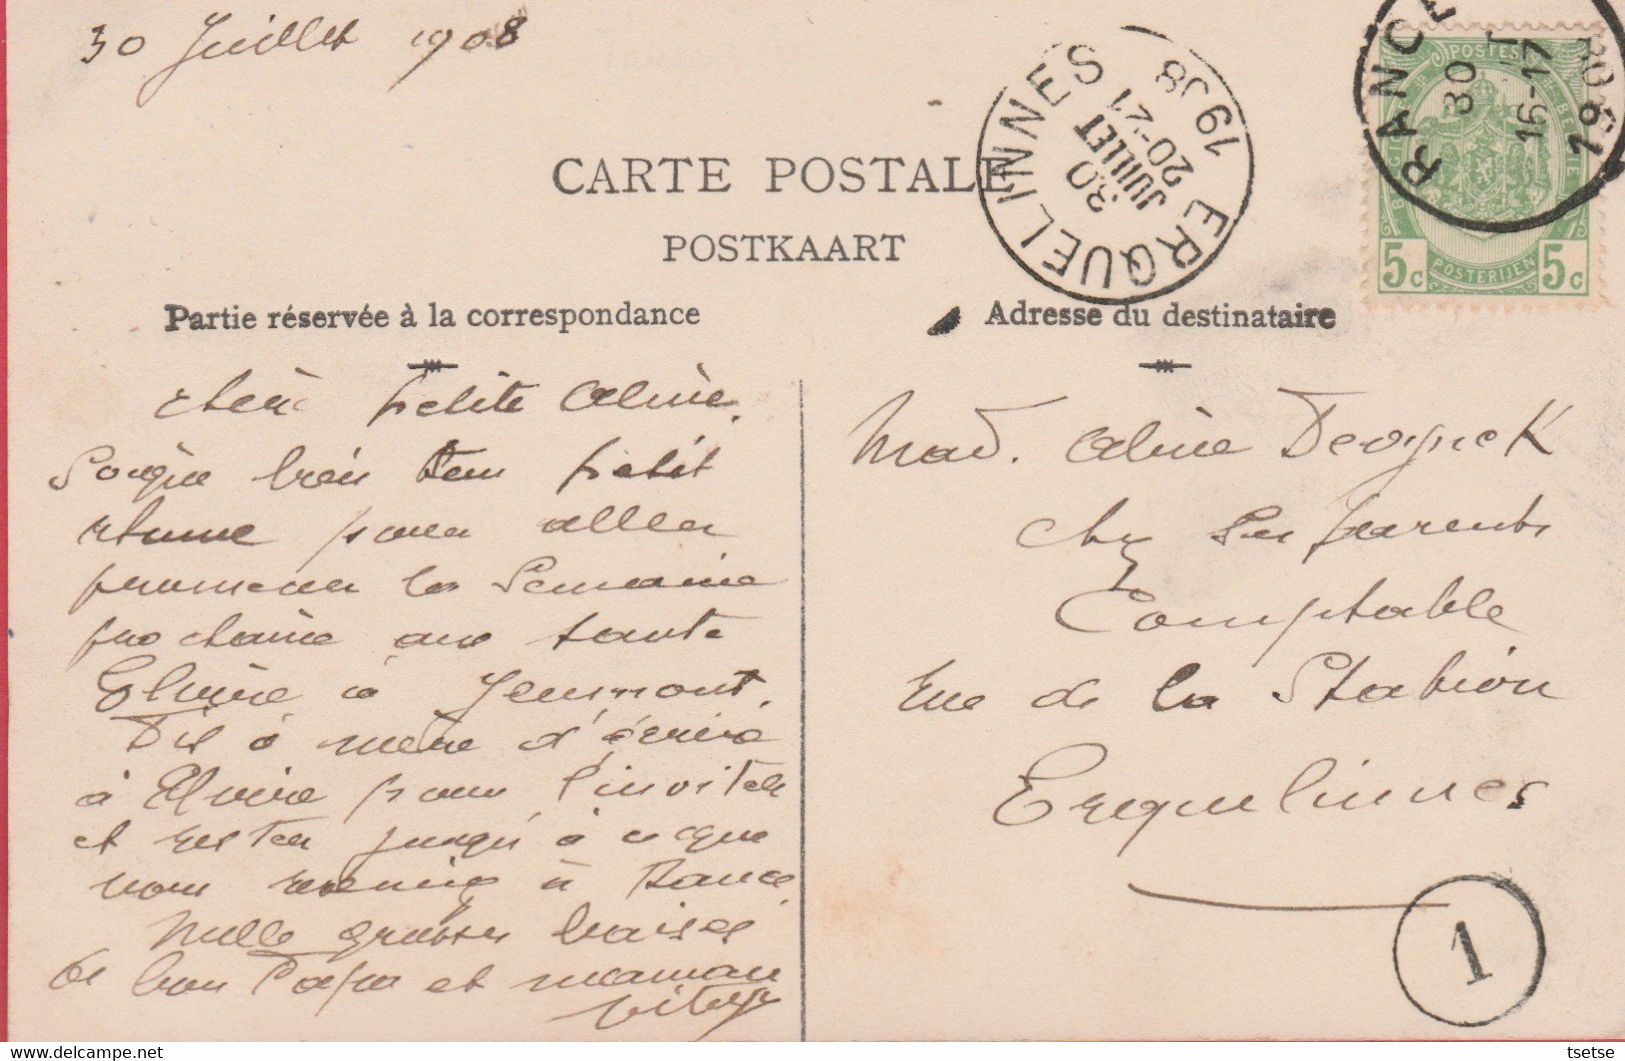 30 Juillet 1908
CARTE POSTALE
POSTKAART
ERQUELINNES
30
JUILLET
20-21
1908
RANCE
30
16-17
1908
POSTES
BELGIQUE
BELGIE
5c
POSTERIJEN
5c
Partie réservée à la correspondance
Adresse du destinataire
chère petite Aline.
Soigne bien ton petit
rhume pour aller
promener la Semaine
prochaine avec tante
Elvire à Jeumont.
Dis à mère d'écrire
à Elvire pour l'inviter
et rester jusqu'à ce que
nous à Rance
Mille grosses baises
de bon Papa et maman
Mad. Aline Devynck
chez ses parents
Comptable
Rue de la Station
Erquelinnes
1
30/12/2022
tsetse